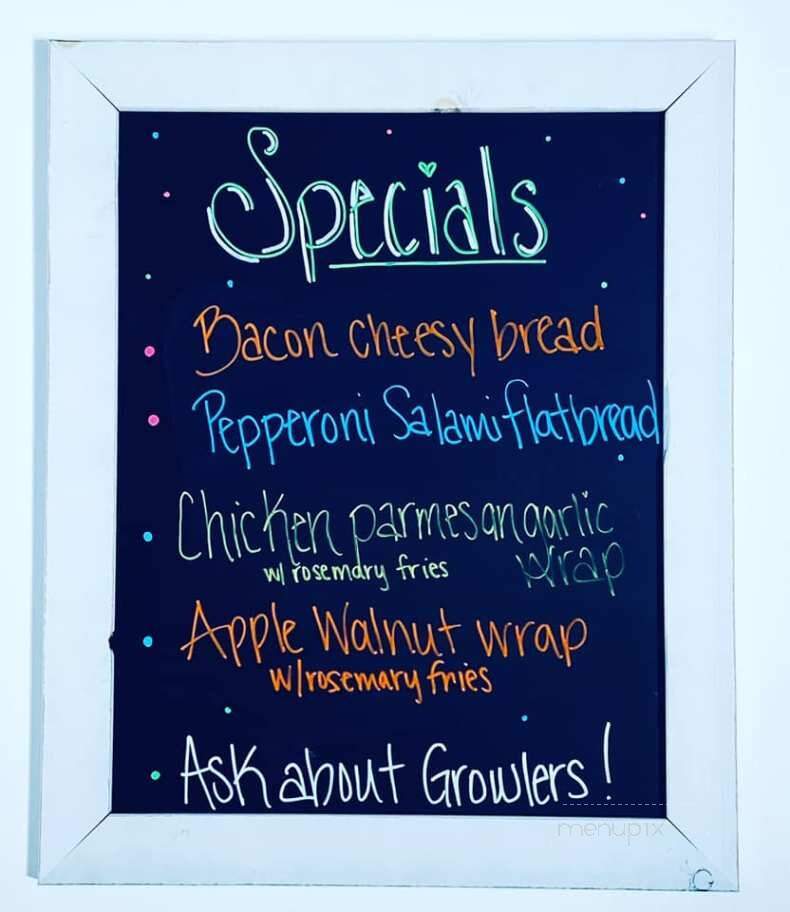 Specials
Bacon cheesy bread
Pepperoni Salami flatbread
Chicken parmesan garlic
wrap
w/ rosemary fries
Apple Walnut wrap
w/rosemary fries
Ask about Growlers!
menupix